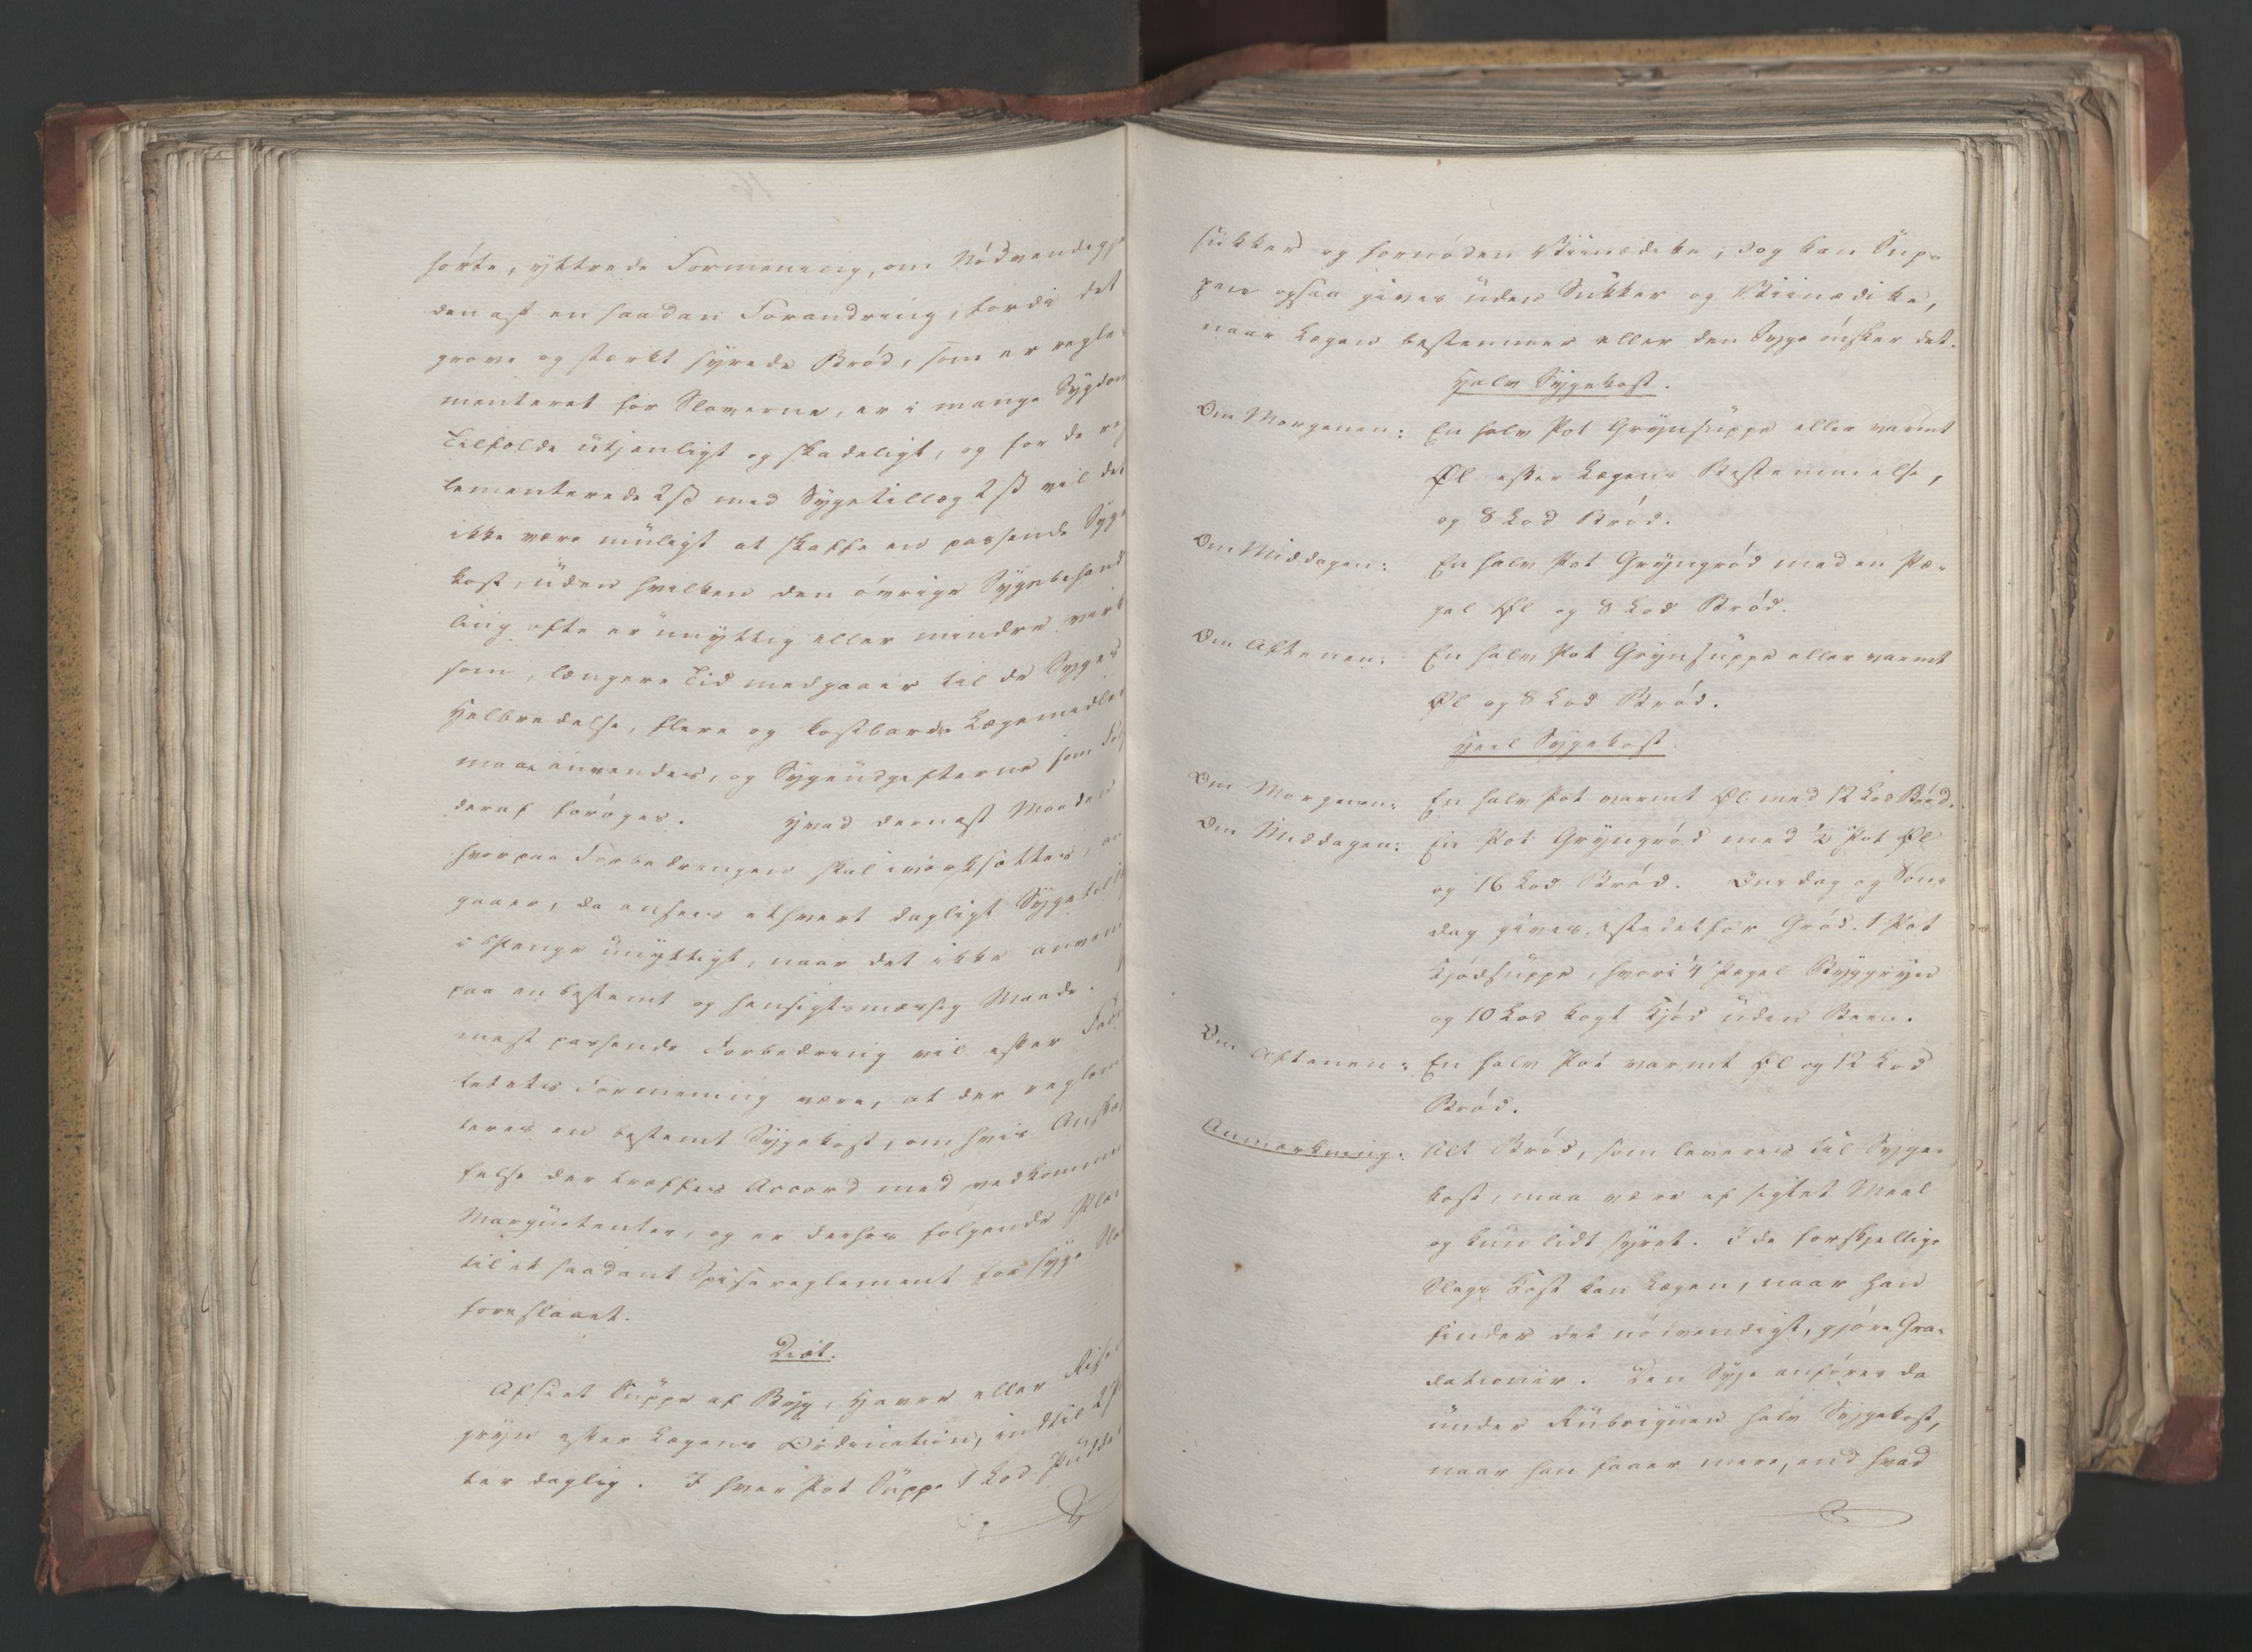 hörte, yttrede Formening, om Nödvendigh
den af en saadan Forandring, fordi det
grove og stærkt syrede Bröd, som er regle-
menteret for Slaverne, er i mange Sygdom
Tilfælde utjenligt og skadeligt, og for de reg
lementerede 2 ß med Sygetillæg 2 ß vil det
ikke være muligt at skaffe en passende Syge
kost, uden hvilken den övrige Sygebehand
ling ofte er unyttig eller mindre virk
som, længere Tid medgaaer til de Syges
Helbredelse, flere og kostbarere Lægemidler
maae anvendes, og Sygeudgifterne som Föl
deraf foröges. Hvad dernæst Maaden
hvorpaa Forbedringen skal iværksættes, an
gaaer, da ansees ethvert dagligt Sygetillæg
i Penge unyttigt, naar det ikke anven
paa en bestemt og hensigtsmæssig Maade.
mest passende Forbedring vil efter Fæl
ledets Formening være, at der reglem
teres en bestemt Sygekost, om hvis Anskaf
felse der træffes Accord med vedkommen
Marquetenter, og er derhos fölgende Pla
til et saadant Spisereglement for syge Sla
foreslaaet.
Diæt.
Afsiet Suppe af Byg, Havre eller Riis-
gryn efter Lægens Ordination, indtil 2 P
ter daglig. I hver Pot Suppe 1 Lod Pudder
sukker og fornöden Viinædike; dog kan Sup-
pen ogsaa gives uden Sukker og Viinædike,
naar Lægen bestemmer eller den Syge önsker det.
Halv Sygekost.
Om Morgenen: En halv Pot Grynsuppe eller varmt
Öl efter Lægens Bestemmelse,
og 8 Lod Bröd.
Om Middagen: En halv Pot Gryngröd med en Pæ-
gel Öl og 8 Lod Bröd.
Om Aftenen: En halv Pot Grynsuppe eller varmt
Öl og 8 Lod Bröd.
Heel Sygekost.
Om Morgenen: En halv Pot varmt Öl med 12 Lod Bröd.
Om Middagen: En Pot Gryngröd med ½ Pot Öl
og 16 Lod Bröd. Onsdag og Sön-
dag gives istedetfor Gröd 1 Pot
Kjödsuppe, hvori ¼ Pægel Byggryn
og 10 Lod kogt Kjöd uden Been.
Om Aftenen: En halv Pot varmt Öl og 12 Lod
Bröd.
Anmærkning: Alt Bröd, som leveres til Syge-
kost, maa være af sigtet Meel
og kun lidt syret. I de forskjellige
Slags Kost kan Lægen, naar han
finder det nödvendigt, gjöre Gra-
dationer. Den Syge anföres da
under Rubriquen halv Sygekost,
naar han faaer mere, end hvad